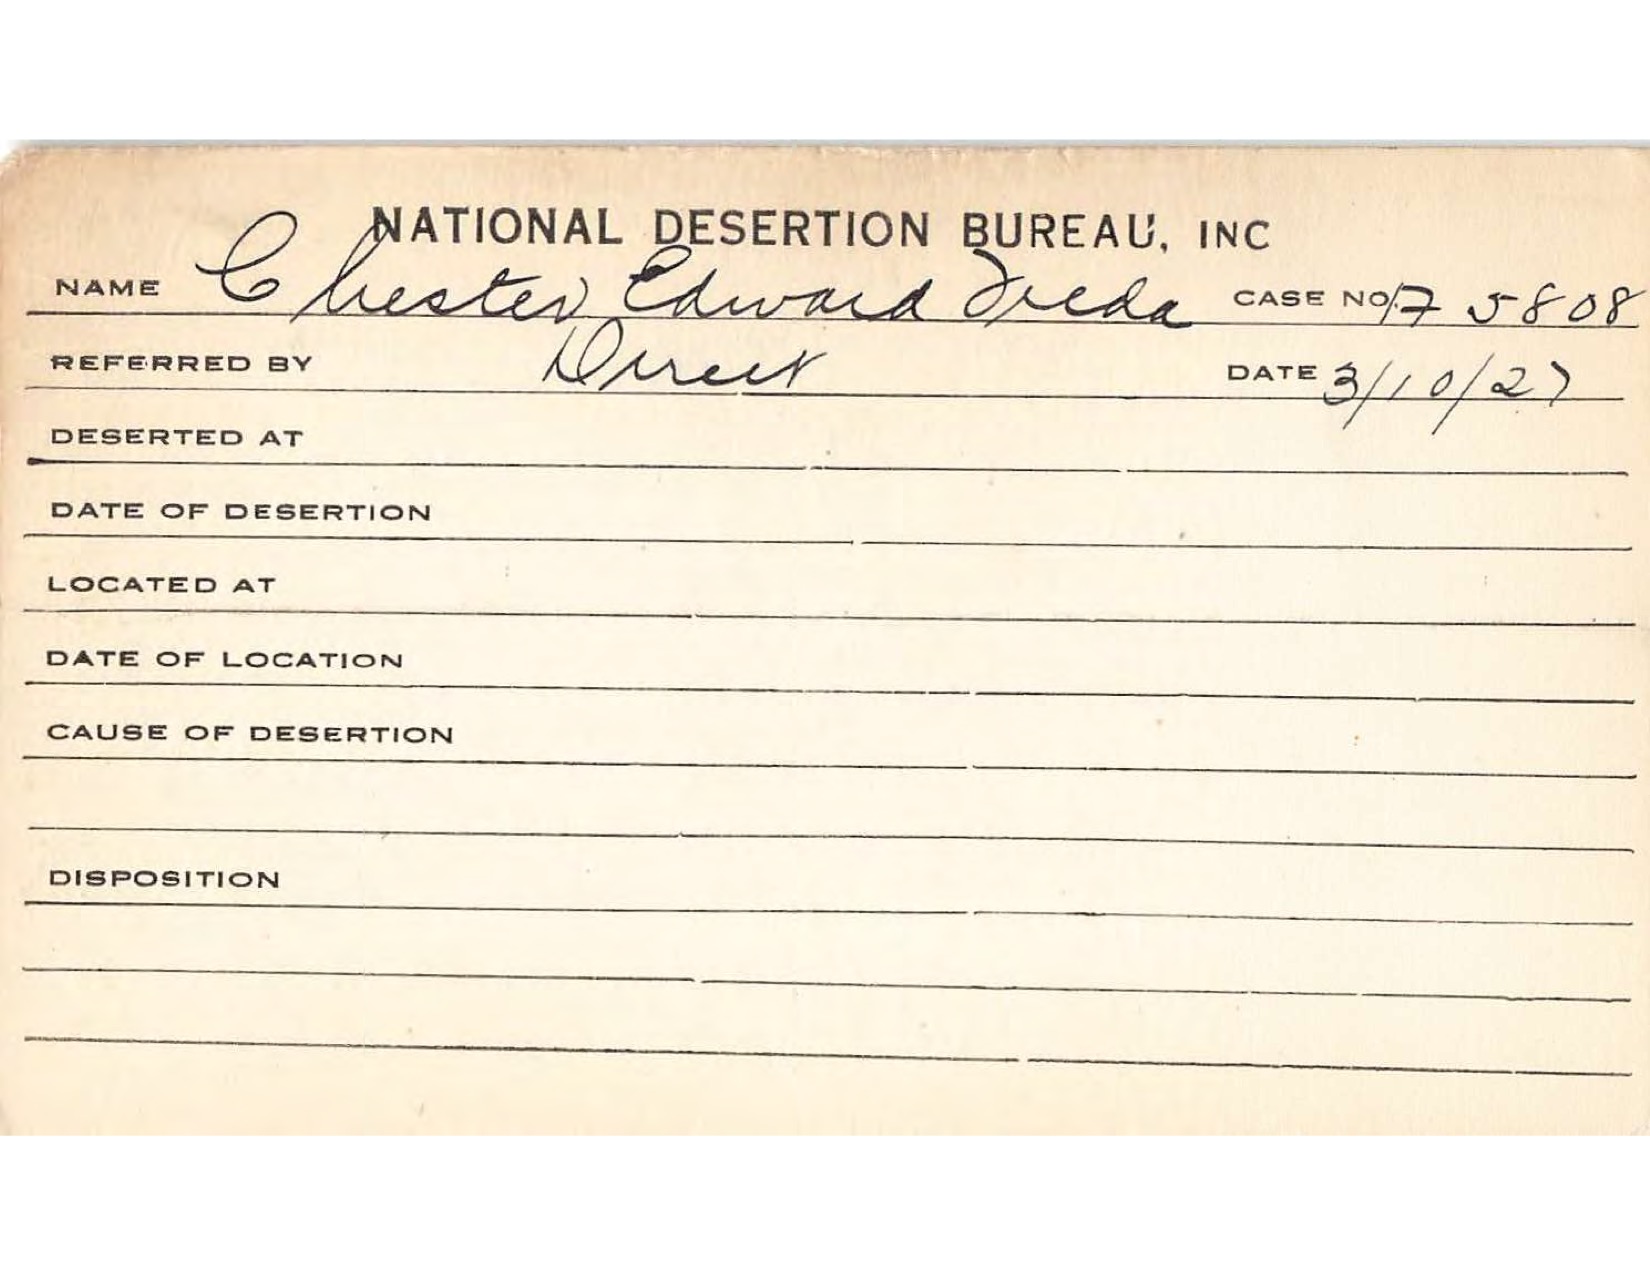 NATIONAL DESERTION BUREAU, INC
NAME Chester Edward Freda CASE NO. F 5808
REFERRED BY Direct DATE 3/10/27
DESERTED AT
DATE OF DESERTION
LOCATED AT
DATE OF LOCATION
CAUSE OF DESERTION
DISPOSITION